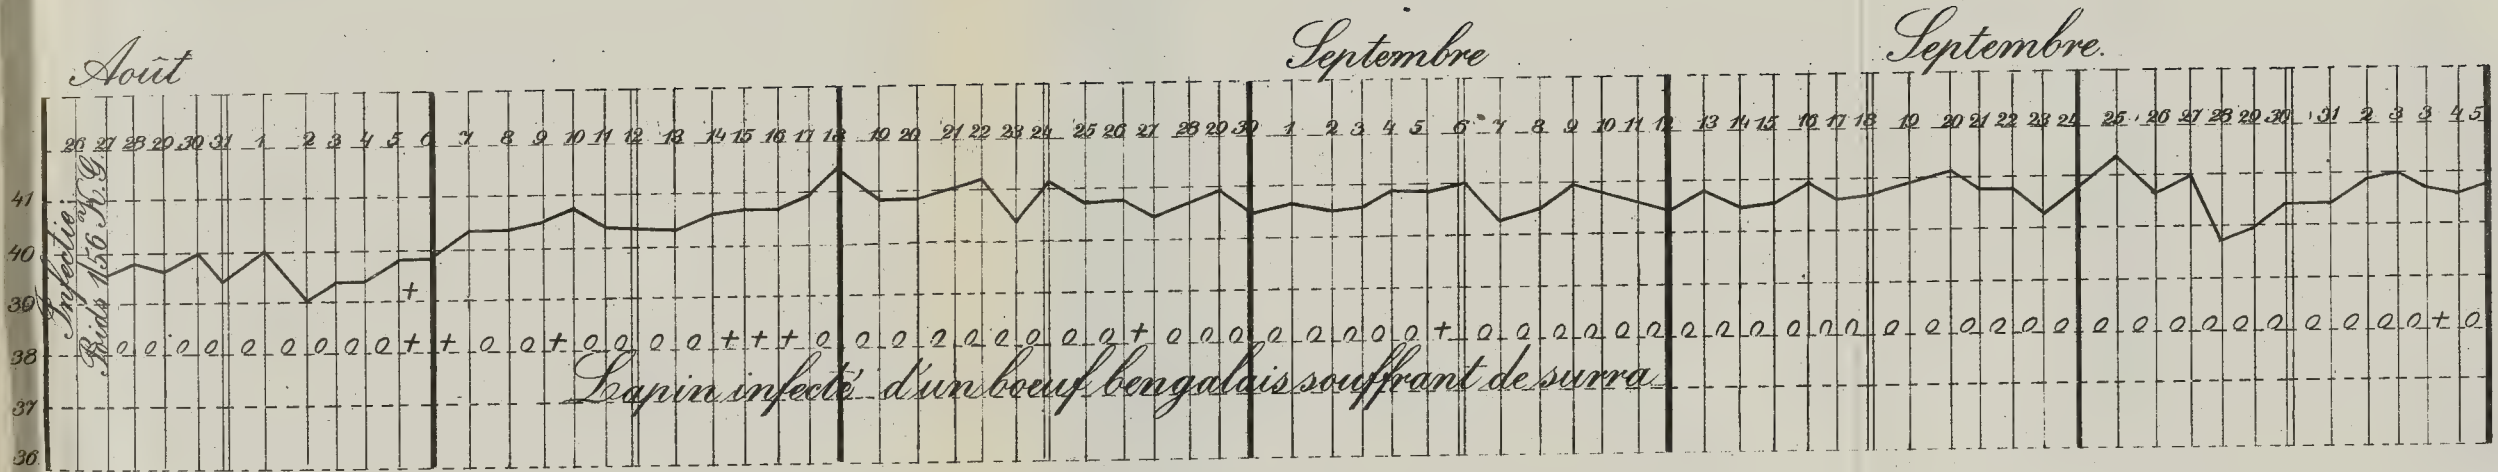 Août
Septembre
Septembre.
26 27 28 29 30 31 1 2 3 4 5 6 7 8 9 10 11 12 13 14 15 16 17 18 19 20 21 22 23 24 25 26 27 28 29 30 1 2 3 4 5 6 7 8 9 10 11 12 13 14 15 16 17 18 19 20 21 22 23 24 25 26 27 28 29 30 31 2 3 3 4 5
41
40
39
38
37
36
Infectio
Poids 1,56 K.G.
+
0 0 0 0 0 0 0 0 0 + + 0 0 + 0 0 0 0 + + + 0 0 0 0 0 0 0 0 0 + 0 0 0 0 0 0 0 0 + 0 0 0 0 0 0 0 0 0 0 0 0 0 0 0 0 0 0 0 0 0 0 0 0 0 0 0 0 + 0
Lapin infecté d'un boeuf bengalais souffrant de surra